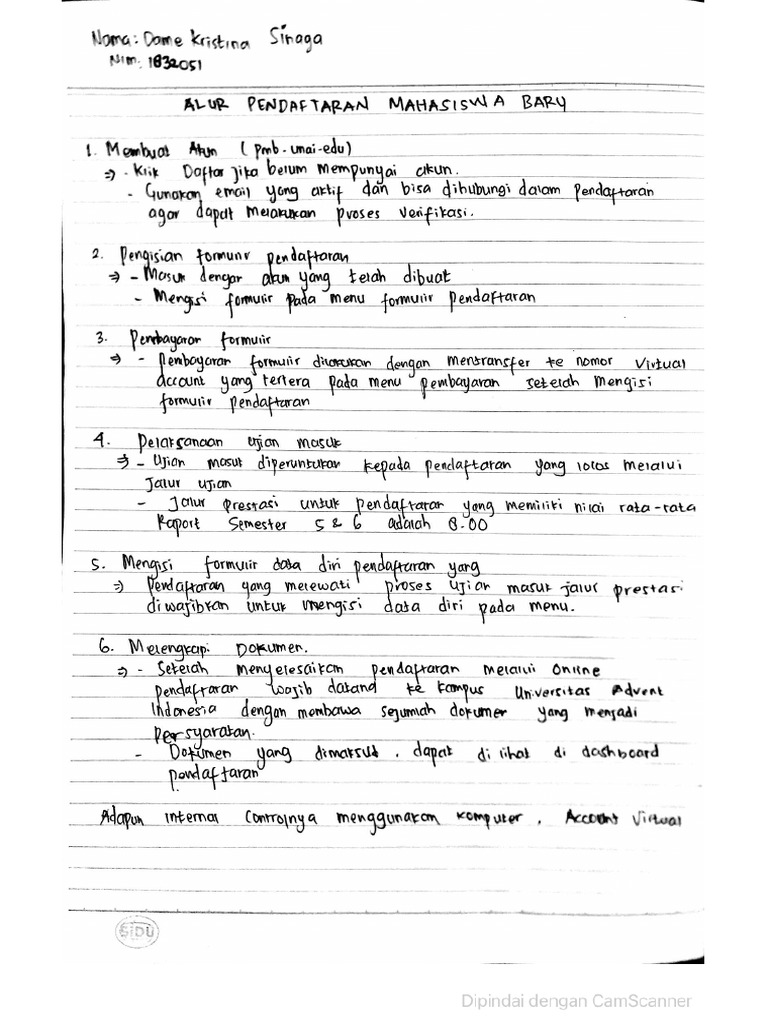 Nama: Dame Kristina Sinaga
Nim: 1832051
ALUR PENDAFTARAN MAHASISWA BARU
1. Membuat Akun ( pmb-unai-edu)
⇒ - Klik Daftar jika belum mempunyai akun.
- Gunakan email yang aktif dan bisa dihubungi dalam pendaftaran
agar dapat melakukan proses verifikasi.
2. Pengisian formulir pendaftaran
⇒ - Masuk dengan akun yang telah dibuat
- Mengisi formulir pada menu formulir pendaftaran
3. Pembayaran formulir
⇒ - Pembayaran formulir dilakukan dengan mentransfer ke nomor virtual
account yang tertera pada menu pembayaran setelah mengisi
formulir pendaftaran
4. Pelaksanaan ujian masuk
⇒ - Ujian masuk diperuntukan kepada pendaftaran yang lolos melalui
Jalur ujian
- Jalur prestasi untuk pendaftaran yang memiliki nilai rata-rata
Raport Semester 5 & 6 adalah 8.00
5. Mengisi formulir data diri pendaftaran yang
⇒ Pendaftaran yang melewati proses ujian masuk jalur prestasi
diwajibkan untuk mengisi data diri pada menu.
6. Melengkapi Dokumen.
⇒ - Setelah menyelesaikan pendaftaran melalui Online
pendaftaran wajib datand ke kampus Universitas Advent
Indonesia dengan membawa sejumlah dokumer yang menjadi
persyaratan.
- Dokumen yang dimaksud, dapat di lihat di dashboard
pendaftaran
Adapun internal Controlnya menggunakan komputer, Account Virtual
SiDU
Dipindai dengan CamScanner